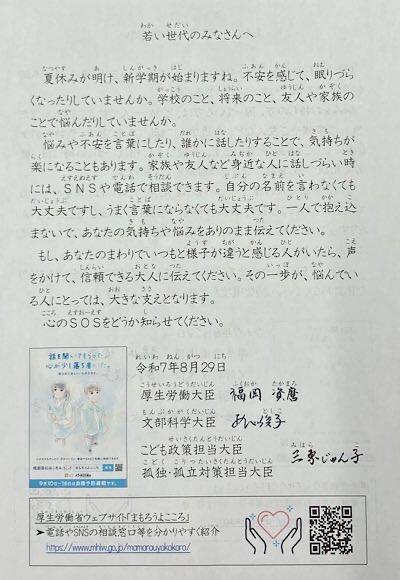 若い世代のみなさんへ
夏休みが明け、新学期が始まりますね。不安を感じて、眠りづら
くなったりしていませんか。学校のこと、将来のこと、友人や家族の
ことで悩んだりしていませんか。
悩みや不安を言葉にしたり、誰かに話したりすることで、気持ちが
楽になることもあります。家族や友人など身近な人に話しづらい時
には、SNSや電話で相談できます。自分の名前を言わなくても
大丈夫ですし、うまく言葉にならなくても大丈夫です。一人で抱え込
まないで、あなたの気持ちや悩みをありのまま伝えてください。
もし、あなたのまわりでいつもと様子が違うと感じる人がいたら、声
をかけて、信頼できる大人に伝えてください。その一歩が、悩んでい
る人にとっては、大きな支えとなります。
心のSOSをどうか知らせてください。
令和7年8月29日
厚生労働大臣 福岡 資麿
文部科学大臣 あべ 俊子
こども政策担当大臣
孤独・孤立対策担当大臣 三原じゅん子
話を聞いてもらうと、
心が少し落ち着いた。
9月10日~16日は自殺予防週間です。
厚生労働省ウェブサイト「まもろうよこころ」
➤電話やSNSの相談窓口等を分かりやすく紹介
https://www.mhlw.go.jp/mamorouyokokoro/